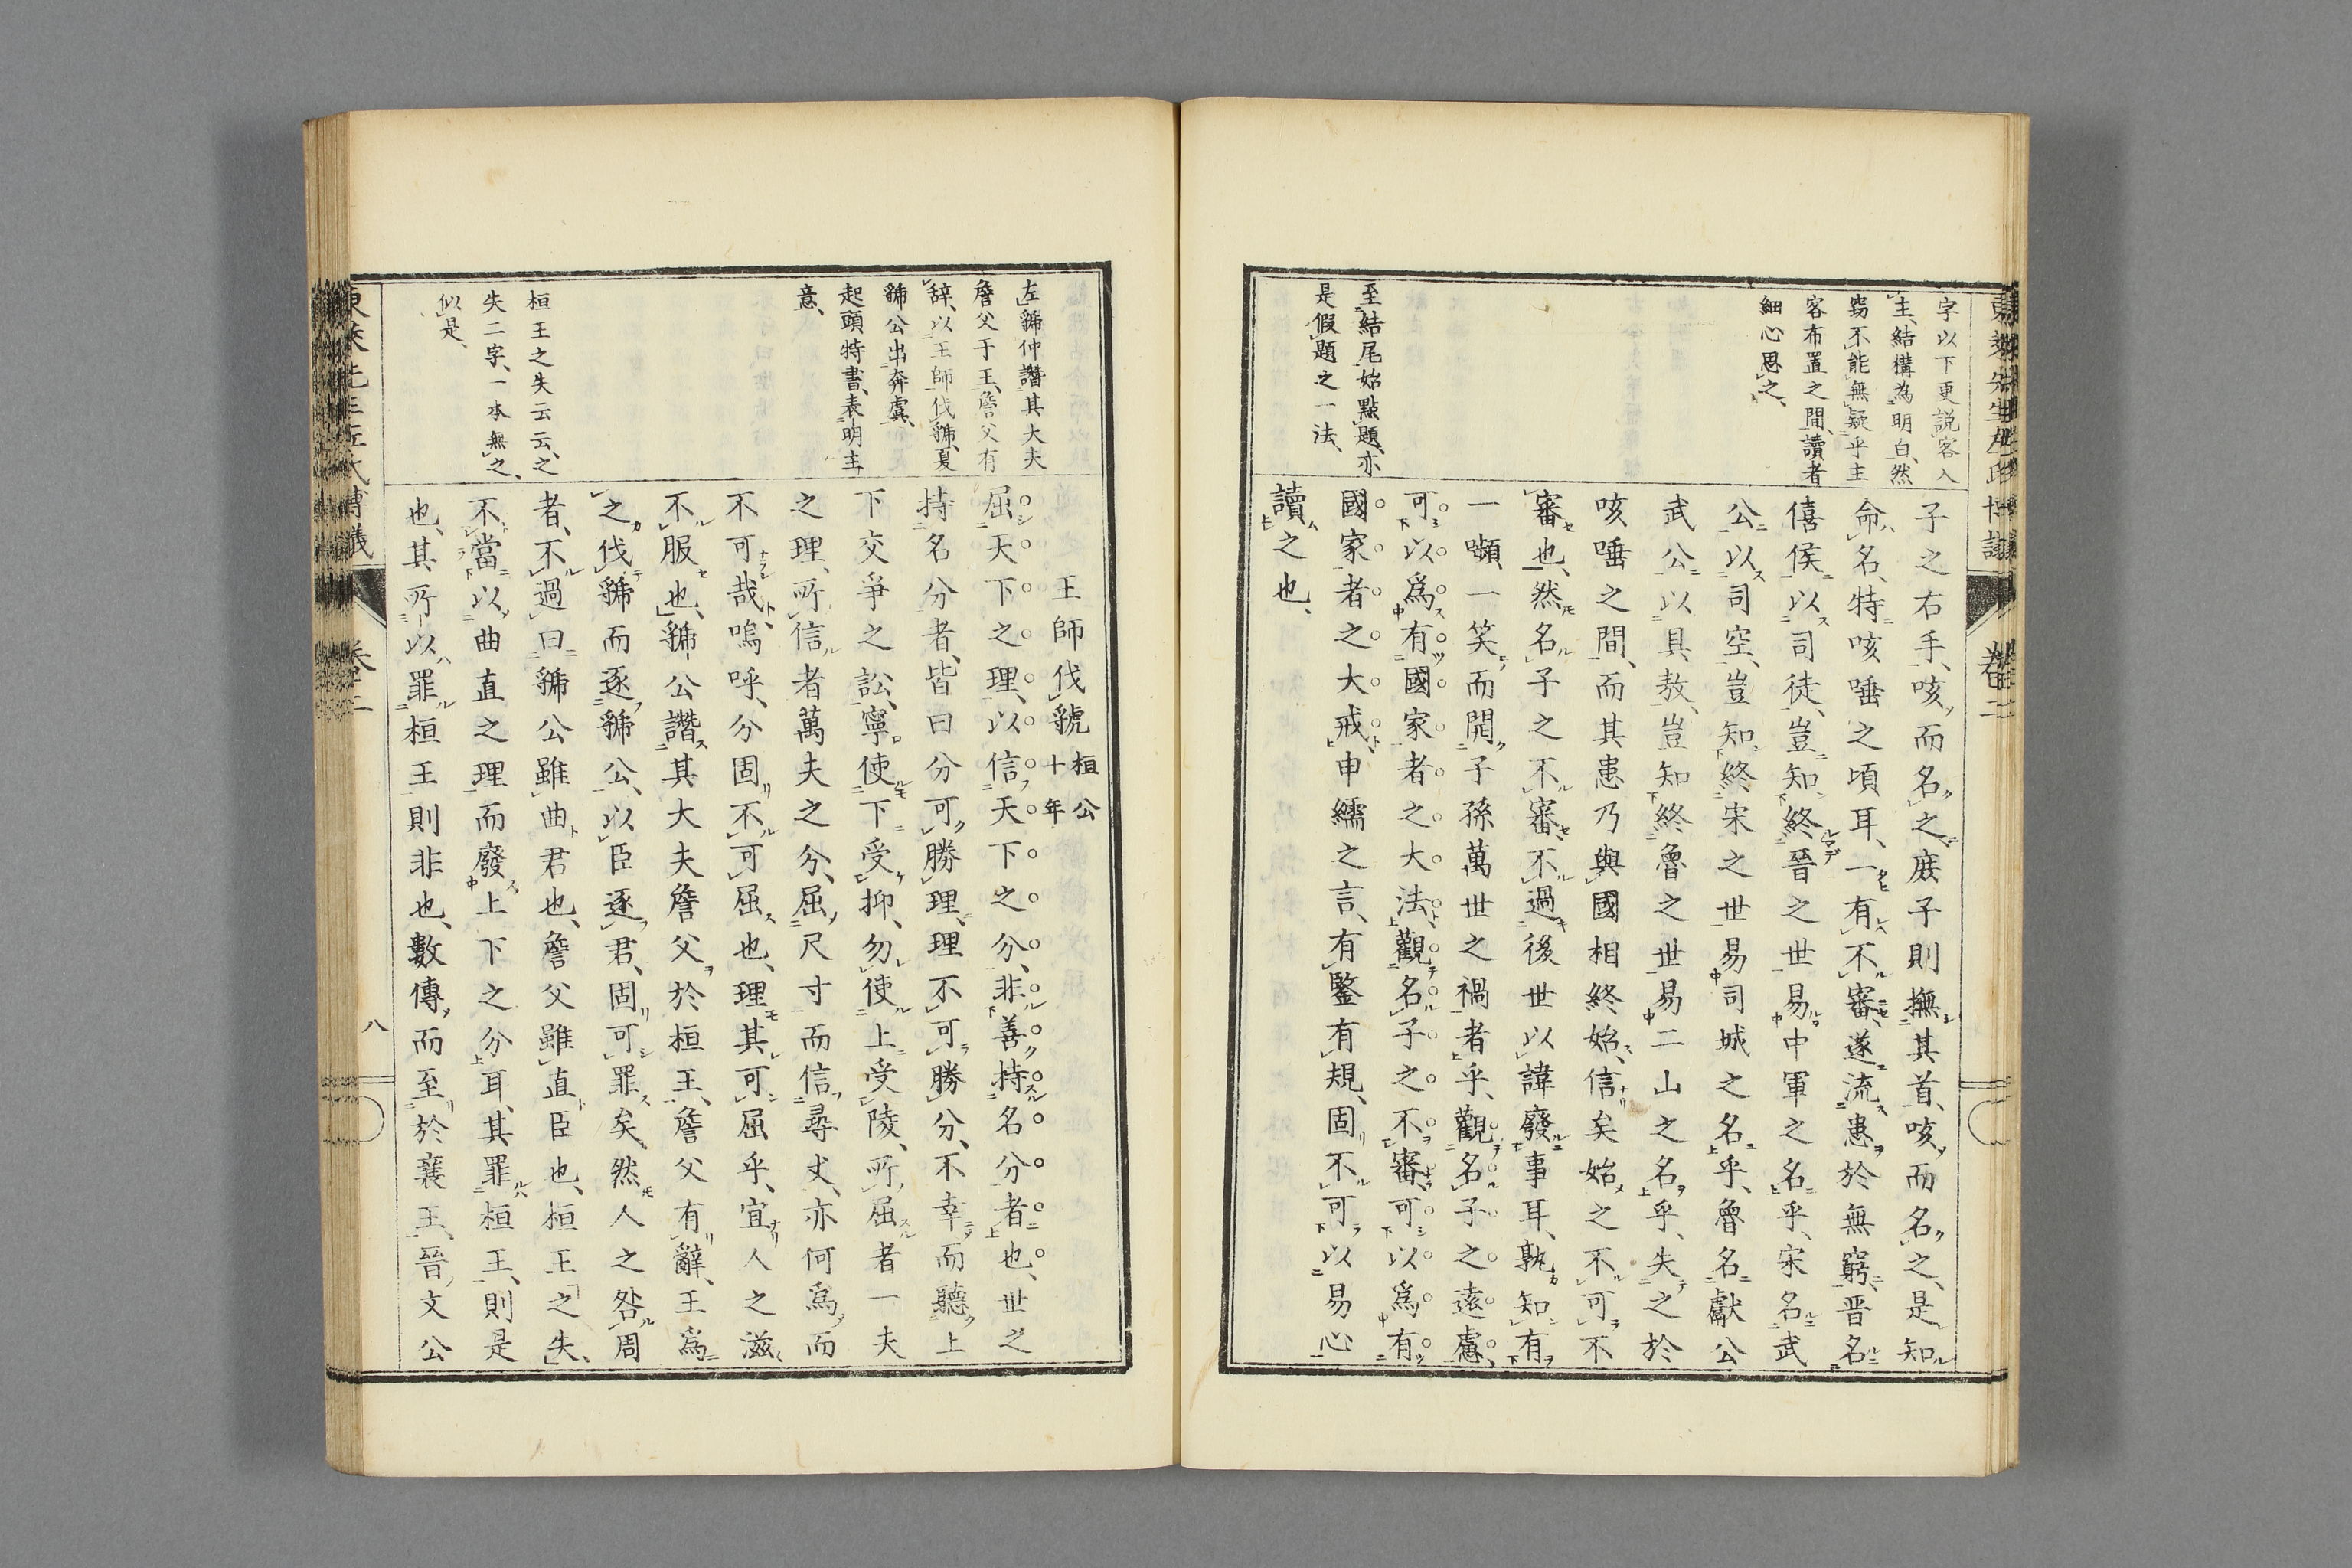 字以下更説客入
主、結構為明白、然
窃不能無疑乎主
客布置之間、讀者
細心思之、
至結尾始點題、亦
是假題之一法、
子之右手、咳而名之、庶子則撫其首、咳而名之、是知
命名、特咳唾之頃耳、一有不審、遂流患於無窮、晋名
僖侯以司徒、豈知終晉之世易中軍之名乎、宋名武
公以司空、豈知終宋之世易司城之名乎、魯名獻公
武公以具敖、豈知終魯之世易二山之名乎、失之於
咳唾之間、而其患乃與國相終始、信矣始之不可不
審也、然名子之不審、不過後世以諱廢事耳、孰知有
一嚬一笑而開子孫萬世之禍者乎、觀名子之遠慮、
可以爲有國家者之大法、觀名子之不審、可以爲有
國家者之大戒、申繻之言、有鑒有規、固不可以易心
讀之也、
左虢仲譖其大夫
詹父于王、詹父有
辞、以王師伐虢、夏
虢公出奔虞、
起頭特書、表明主
意、
桓王之失云云、之
失二字、一本無之、
似是、
王師伐虢 桓公十年
屈天下之理、以信天下之分、非善持名分者也、世之
持名分者、皆曰分可勝理、理不可勝分、不幸而聽上
下交爭之訟、寧使下受抑、勿使上受陵、所屈者一夫
之理、所信者萬夫之分、屈尺寸而信尋丈、亦何爲而
不可哉、嗚呼、分固不可屈也、理其可屈乎、宜人之滋
不服也、虢公譖其大夫詹父於桓王、詹父有辭、王爲
之伐虢而逐虢公、以臣逐君、固可罪矣、然人之咎周
者、不過曰虢公雖曲君也、詹父雖直臣也、桓王之失、
不當以曲直之理而廢上下之分耳、其罪桓王、則是
也、其所以罪桓王則非也、數傳而至於襄王、晉文公
東萊先生左氏博議 卷二
八